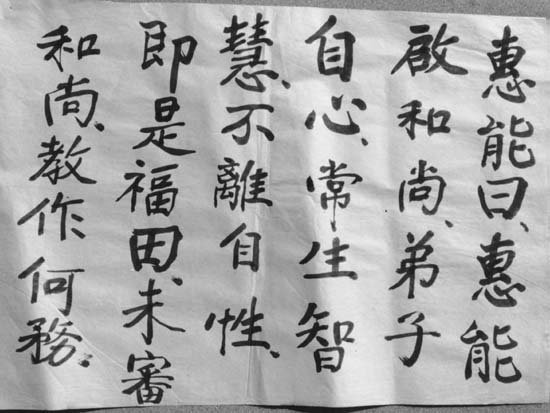 惠能曰、惠能
啟和尚、弟子
自心、常生智
慧、不離自性、
即是福田、未審
和尚、教作何務。